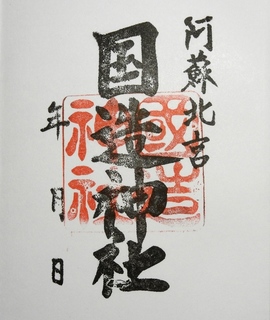 阿蘇北宮
国造神社
年月日
國造神社